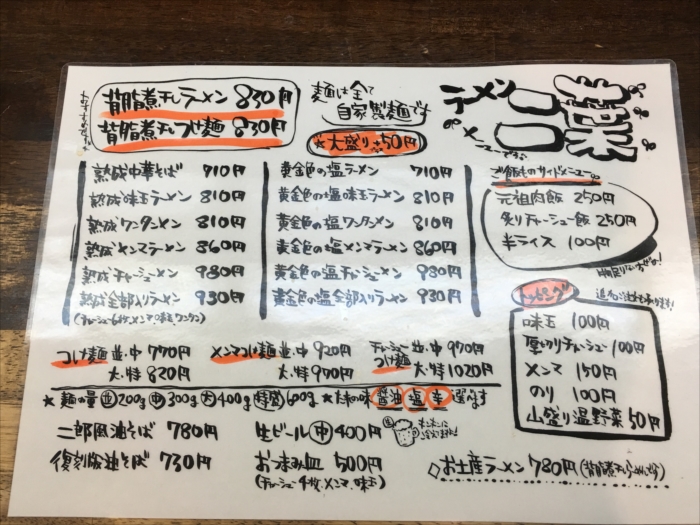 背脂煮干しラメン 830円
背脂煮干しつけ麺 830円
麺は全て
自家製麺です
★大盛り+50円
ラーメン
メニューです。
熟成中華そば 710円
熟成味玉ラーメン 810円
熟成ワンタンメン 810円
熟成メンマラーメン 860円
熟成チャーシューメン 980円
熟成全部入りラーメン 930円
(チャーシュー6枚、メンマ、味玉、ワンタン)
黄金色の塩ラーメン 710円
黄金色の塩味玉ラーメン 810円
黄金色の塩ワンタンメン 810円
黄金色の塩メンマラーメン 860円
黄金色の塩チャーシューメン 980円
黄金色の塩全部入りラーメン 930円
ご飯ものサイドメニュー
元祖肉飯 250円
炙りチャーシュー飯 250円
半ライス 100円
トッピング
味玉 100円
厚切りチャーシュー 100円
メンマ 150円
のり 100円
山盛り温野菜 50円
つけ麺 並・中 770円
大・特 820円
メンマつけ麺 並・中 920円
大・特 970円
チャーシューつけ麺 並・中 970円
大・特 1020円
★麺の量 並200g 中300g 大400g 特盛600g
醤油 塩 辛 選べます
二郎風油そば 780円
復刻版油そば 730円
生ビール 中 400円
おつまみ皿 500円
(チャーシュー4枚、メンマ、味玉)
◇お土産ラーメン 780円